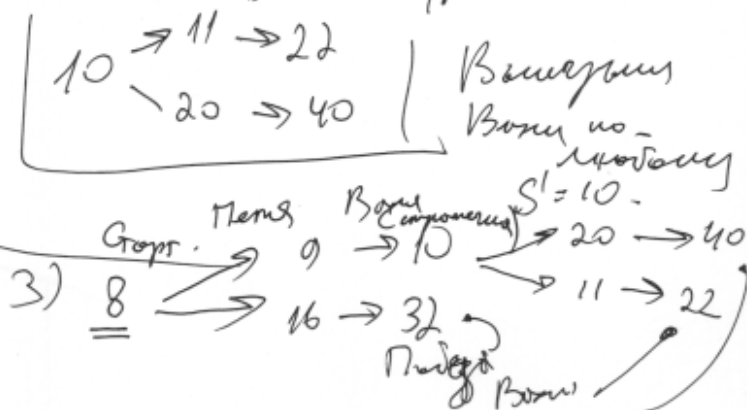 10 → 11 → 22
↘ 20 → 40
Выигрыш
Вани по-
любому
Старт. Петя Ваня (стратегия) S' = 10.
3) 8 → 9 → 10 → 20 → 40
→ 11 → 22
→ 16 → 32
Победа
Вани